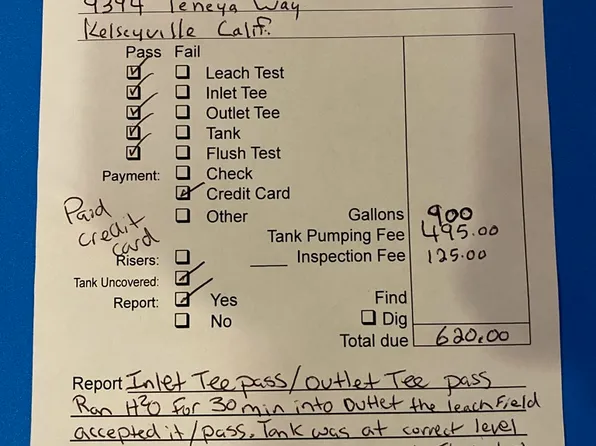 9394 Teneya Way
Kelseyville Calif.
Pass Fail
Leach Test
Inlet Tee
Outlet Tee
Tank
Flush Test
Payment: Check
Credit Card
Other
Paid credit card
Gallons 900
Tank Pumping Fee 495.00
Risers: Inspection Fee 125.00
Tank Uncovered:
Report: Yes Find
No Dig
Total due 620.00
Report Inlet Tee pass/outlet Tee pass
Ran H²O for 30 min into outlet the leach field
accepted it/pass. Tank was at correct level